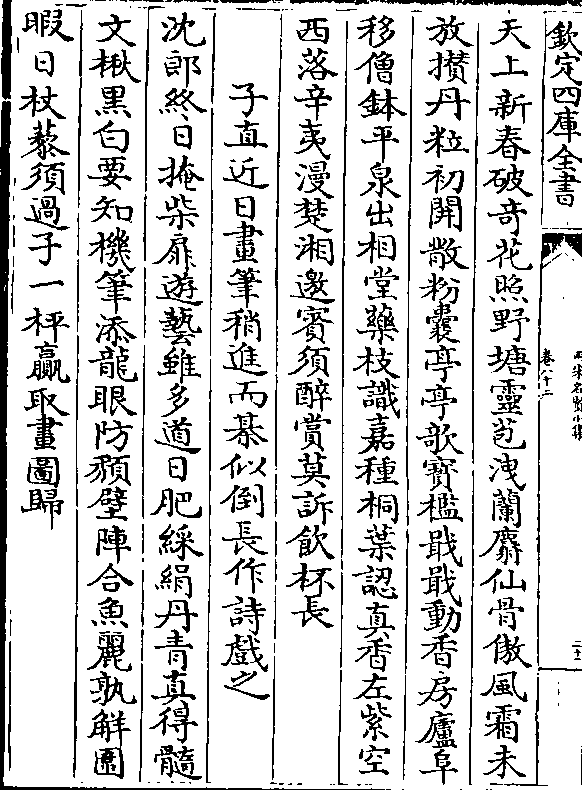 欽定四庫全書
兩宋名賢小集
卷八十二
天上新春破奇花照野塘靈芭洩蘭麝仙骨傲風霜未
放攅丹粒初開散粉囊亭亭歌寳檻戢戢動香房廬阜
移僧鉢平泉出相堂藥枝識嘉種桐葉認真香左紫空
西落辛夷漫楚湘邀賓須醉賞莫訴飲杯長
子直近日畫筆稍進而棊似倒長作詩戲之
沈郎終日掩柴扉遊藝雖多道日肥綵絹丹青真得髓
文楸黑白要知機筆添龍眼防頽壁陣合魚麗孰解圍
暇日杖藜須過子一枰贏取畫圖歸